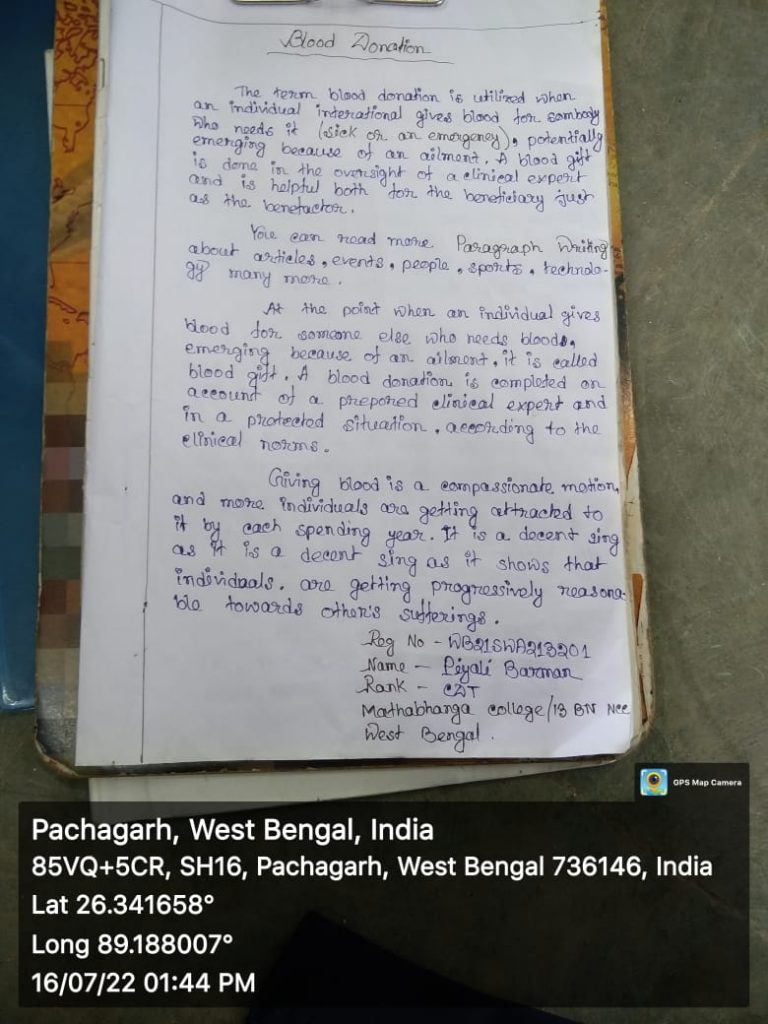 Blood Donation
The term blood donation is utilized when
an individual interational gives blood for sombody
who needs it (sick or an emorgency), potentially
emerging because of an ailment. A blood gift
is done in the oversight of a clinical expert
and is helpful both for the beneficiary just
as the benefactor.
You can read more Paragraph Writing
about articles, events, people, sports, technolo-
gy many more.
At the point when an individual gives
blood for someone else who needs bloods,
emerging because of an ailment, it is called
blood gift. A blood donation is completed on
account of a prepored clinical expert and
in a protected situation, according to the
clinical norms.
Giving blood is a compassionate motion,
and more individuals are getting attracted to
it by each spending year. It is a decent sing
as it is a decent sing as it shows that
individaals. are getting progressively reasona-
ble towards other's sufferings.
Reg No - WB21SWA213201
Name - Piyali Barman
Rank - CDT
Mathabhanga college/13 BN Ncc
West Bengal.
GPS Map Camera
Pachagarh, West Bengal, India
85VQ+5CR, SH16, Pachagarh, West Bengal 736146, India
Lat 26.341658°
Long 89.188007°
16/07/22 01:44 PM